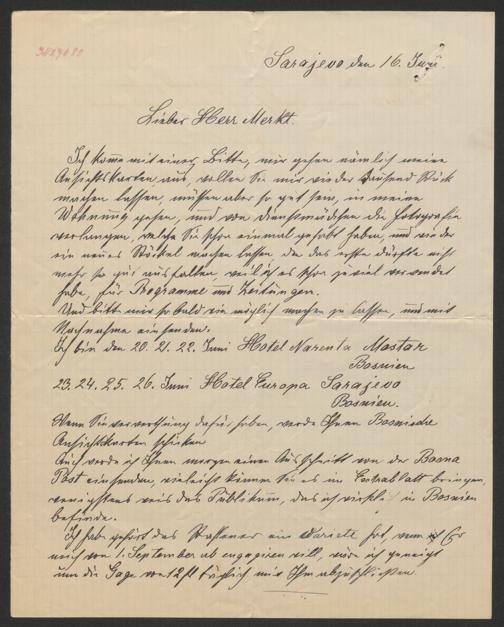 Sarajevo den 16. Juni
Lieber Herr Merkt.
Ich komme mit einer Bitte, mir gehen nämlich meine
Ansichtskarten aus, wollen Sie mir wieder Tausend Stück
machen lassen, müssen aber so gut sein, in meine
Wohnung gehen, und von Dienstmädchen die Fotografie
verlangen, welche Sie schon einmal gehabt haben, und wieder
ein neues Stöckel machen lassen, da das erste dürfte nicht
mehr so gut ausfallen, weil ich es schon zu viel verwendet
habe, für Programme und Zeitungen.
Und bitte mir so bald wie möglich machen zu lassen, und mit
Nachnahme einsenden.
Ich bin den 20. 21. 22. Juni Hotel Narenta Mostar
Bosnien
23. 24. 25. 26. Juni Hotel Europa Sarajevo
Bosnien.
Wenn Sie Verwendung dafür haben, werde Ihnen Bosnische
Ansichtskarten schicken
Auch werde ich Ihnen morgen einen Ausschnitt von der Bosna
Post einsenden, vieleicht können Sie es im Extrablatt bringen,
wenigstens weis das Publikum, das ich wirkli in Bosnien
befinde.
Ich hab gehört das ein Variete hat, wenn Er
mich von 1. September ab engagiren will, wäre ich geneigt
um die Gage von 12 fl täglich mit Ihm abzuschließen